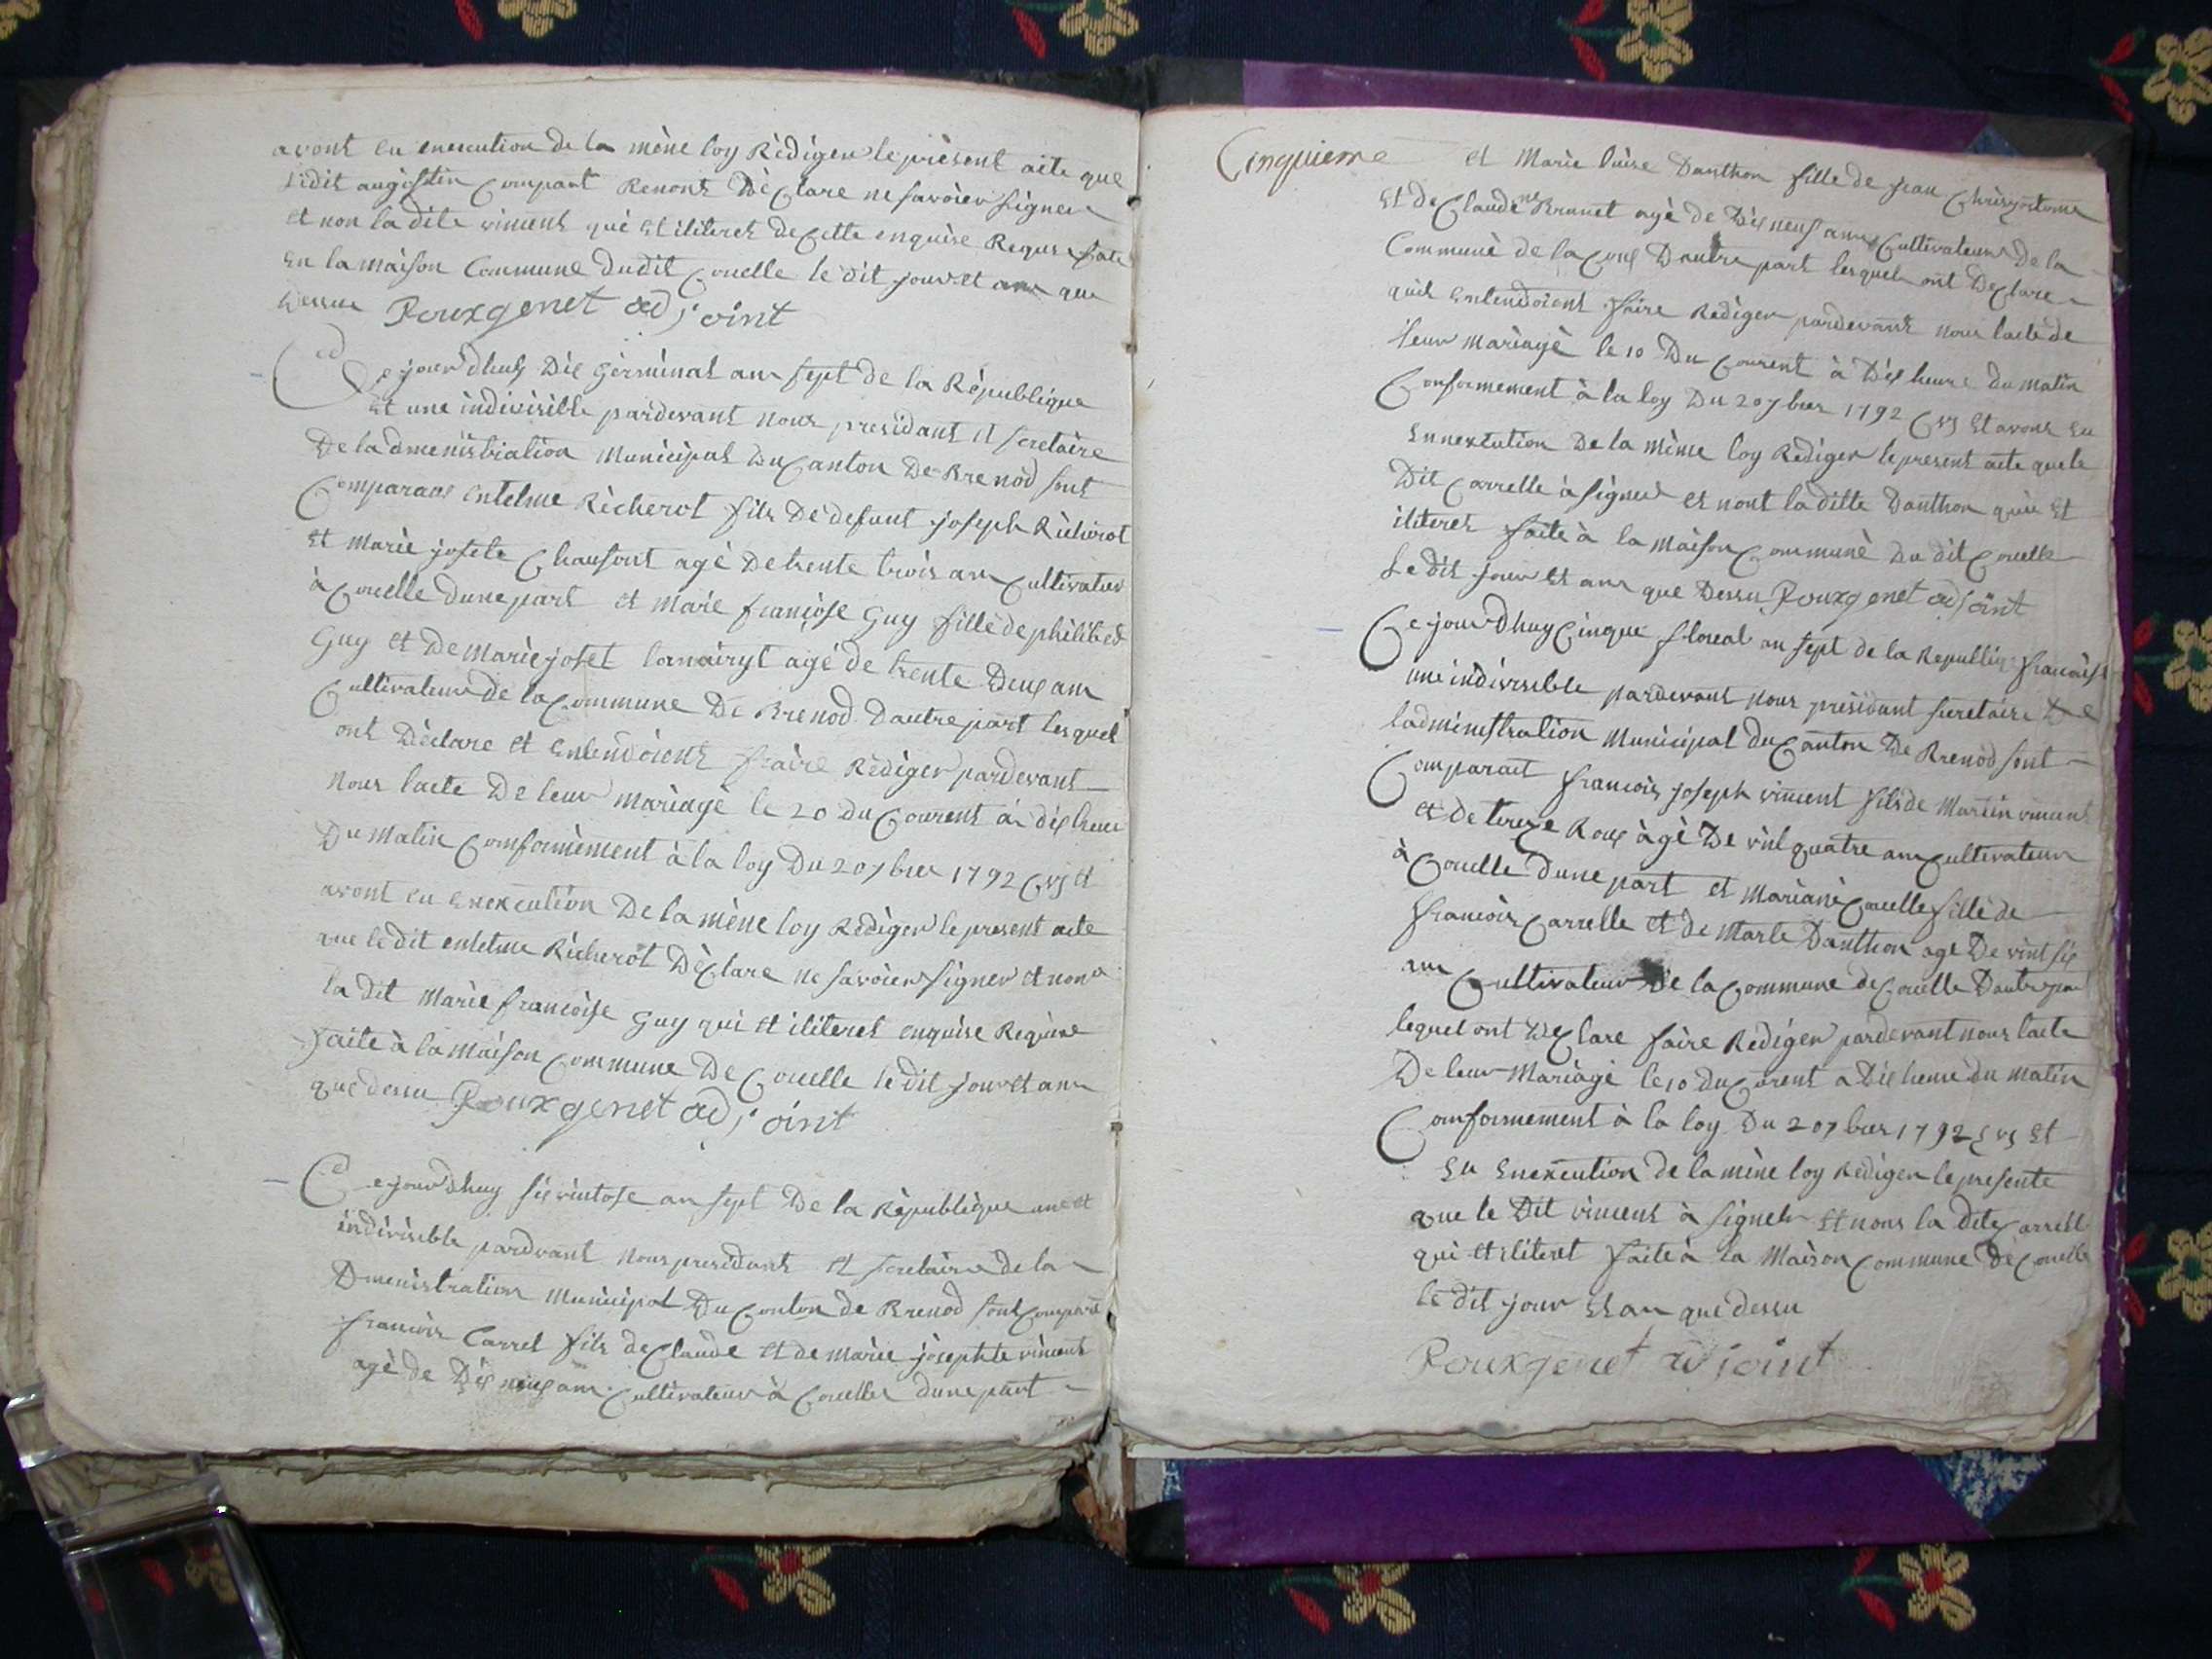 avons en enexcution de la mène loy Rèdiger le prèsent aite que
Ledit augjstin compant Renont Dèclare ne savoier signer
et non la dite vincens què et iliteret de cette enquise Requse faite
en la maison Commune dudit Corcelle le dit jour et ans que
dessus Rouxgenet adjoint
Ce jourdhuy Dis gèrminal ans sept de la Rèpublique
et une indivisible pardevant nous presidant et secretaire
De ladmenistration Municipal du Canton De Brenod sont
Comparans entelme Richerot fils De defunt joseph Richerot
et marie josete Chaufont agè De trente trois ans Cultivateur
à Corcelle dune part et Marie françoise Guy fille de philibert
Guy et De marie joset agé de trente Deux ans
Cultivateur de la Commune De Brenod Dautre part lesquel
ont Dèclare et Entendoient faire Rèdiger pardevant
Nous lacte De leur mariage le 20 du Courent à dix heure
Du matin Comformèment à la loy Du 20 7bre 1792 et
avont en enexcution De la mène loy Rèdiger le present acte
que ledit entelme Richerot Dèclare ne savoier signer et non
la dit Marie françoise Guy qui et iliteret enquise Requise
faite à la maison Commune De Corcelle le dit jour et ans
que dessu Rouxgenet adjoint
Ce jourdhuy six vintose an sept De la Rèpublique une et
indivisible pardvant nous presidant et secretaire de la
Dmenistration Municipal Du Conton de Brenod sont Comparè
françois Carrel fils de Claude et de marie josephte vincent
agè de Dix neuf ans Cultivateur à Corcelles dune part
Cinquieme et Marie luise Danthon fille de jean Chrisostome
et de Claudine Brunet agè de Dix neuf ans Cultivateur De la
Communè de la Coux Dautre part lesquel ont Declare
quil entendoient faire Rediger pardevant nous lacte de
leur mariage le 10 Du Courent à Dix heure du matin
Conformement à la loy Du 20 7bre 1792 et avons en
ennexcution De la mème loy Rediger le present acte que le
Dit Carrelle à signer et nont la ditte Danthon quie et
iliteret faite à la maison Communè du dit Corcelle
Le dit jour et ans que Dessu Rouxgenet adjoint
Ce jourdhuy Cinque floreal an sept de la Republiq françoise
une indivisible pardevant nous prèsidant secretaire De
ladmenistration Municipal du Canton De Brenod sont
Comparait françois joseph vincent fils de Martin vincent
et de tereze Roux àgè De vint quatre ans Cultivateur
à Corcelle dune part et marianè Carrelle fille de
françois Carrelle et de Marte Danthon age De vint six
ans Cultivateur De la Commune de Corcelle Dautre part
lequel ont Declare faire Rediger pardevant nous lacte
De leur Mariage le 10 du Corent a Dix heure du matin
Comformement à la loy Du 20 7bre 1792 et
en enexcution de la mène loy Rediger le presente
que le Dit vincent à signer et nons la dite Carrell
qui et iliteret faite à la Maison Commune De Corcelle
le dit jour et an que dessu
Rouxgenet adjoint